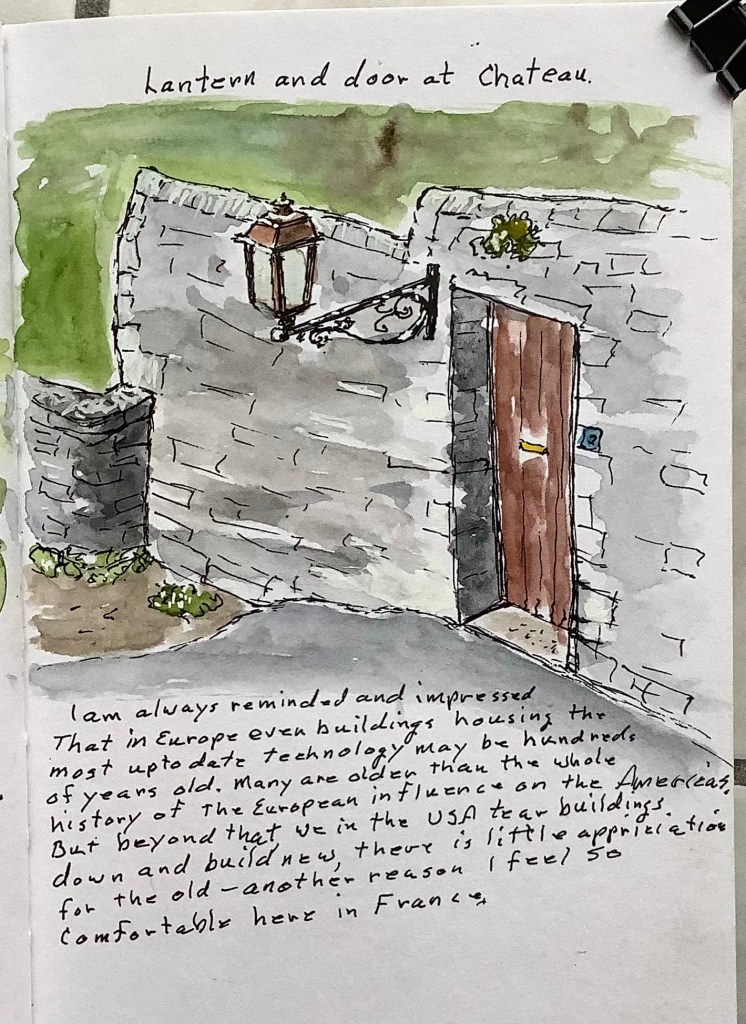 Lantern and door at Chateau.
3
I am always reminded and impressed
That in Europe even buildings housing the
most up to date technology may be hundreds
of years old. Many are older than the whole
history of The European influence on the Americas.
But beyond that, we in the USA tear buildings
down and build new, there is little appriciation
for the old - another reason I feel so
Comfortable here in France.